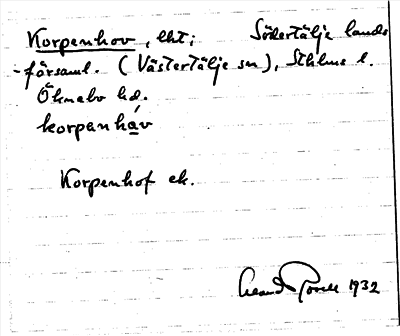 Korpenhov, lht i Södertälje lands
-församl. (Västertälje sn), Sthlms l.
Öknebo hd.
korpenháv
Korpenhof ek.
1932